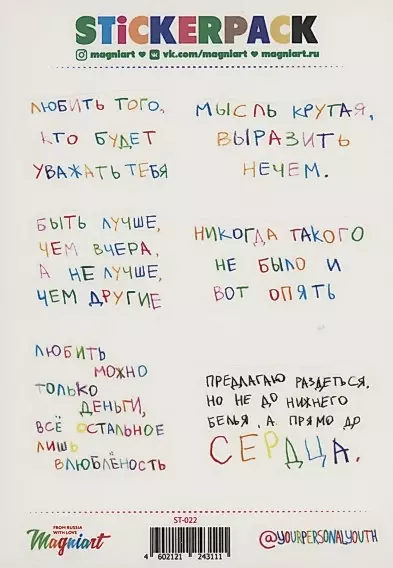 STiCKERPACK
magniart ❤ vk.com/magniart ❤ magniart.ru
ЛЮБИТЬ ТОГО,
КТО БУДЕТ
УВАЖАТЬ ТЕБЯ
МЫСЛЬ КРУТАЯ,
ВЫРАЗИТЬ
НЕЧЕМ.
БЫТЬ ЛУЧШЕ,
ЧЕМ ВЧЕРА,
А НЕ ЛУЧШЕ,
ЧЕМ ДРУГИЕ
НИКОГДА ТАКОГО
НЕ БЫЛО И
ВОТ ОПЯТЬ
ЛЮБИТЬ
МОЖНО
ТОЛЬКО
ДЕНЬГИ,
ВСЁ ОСТАЛЬНОЕ
ЛИШЬ
ВЛЮБЛЁНОСТЬ
ПРЕДЛАГАЮ РАЗДЕТЬСЯ,
НО НЕ ДО НИЖНЕГО
БЕЛЬЯ, А ПРЯМО ДО
СЕРДЦА.
FROM RUSSIA
WITH LOVE
Magniart
ST-022
4 602121 243111
@YOURPERSONALYOUTH